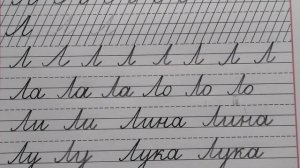 Л
Л Л Л Л Л Л Л Л
Ла Ла Ла Ло Ло Ло
Ли Ли Лина Лина
Лу Лу Лука Лука